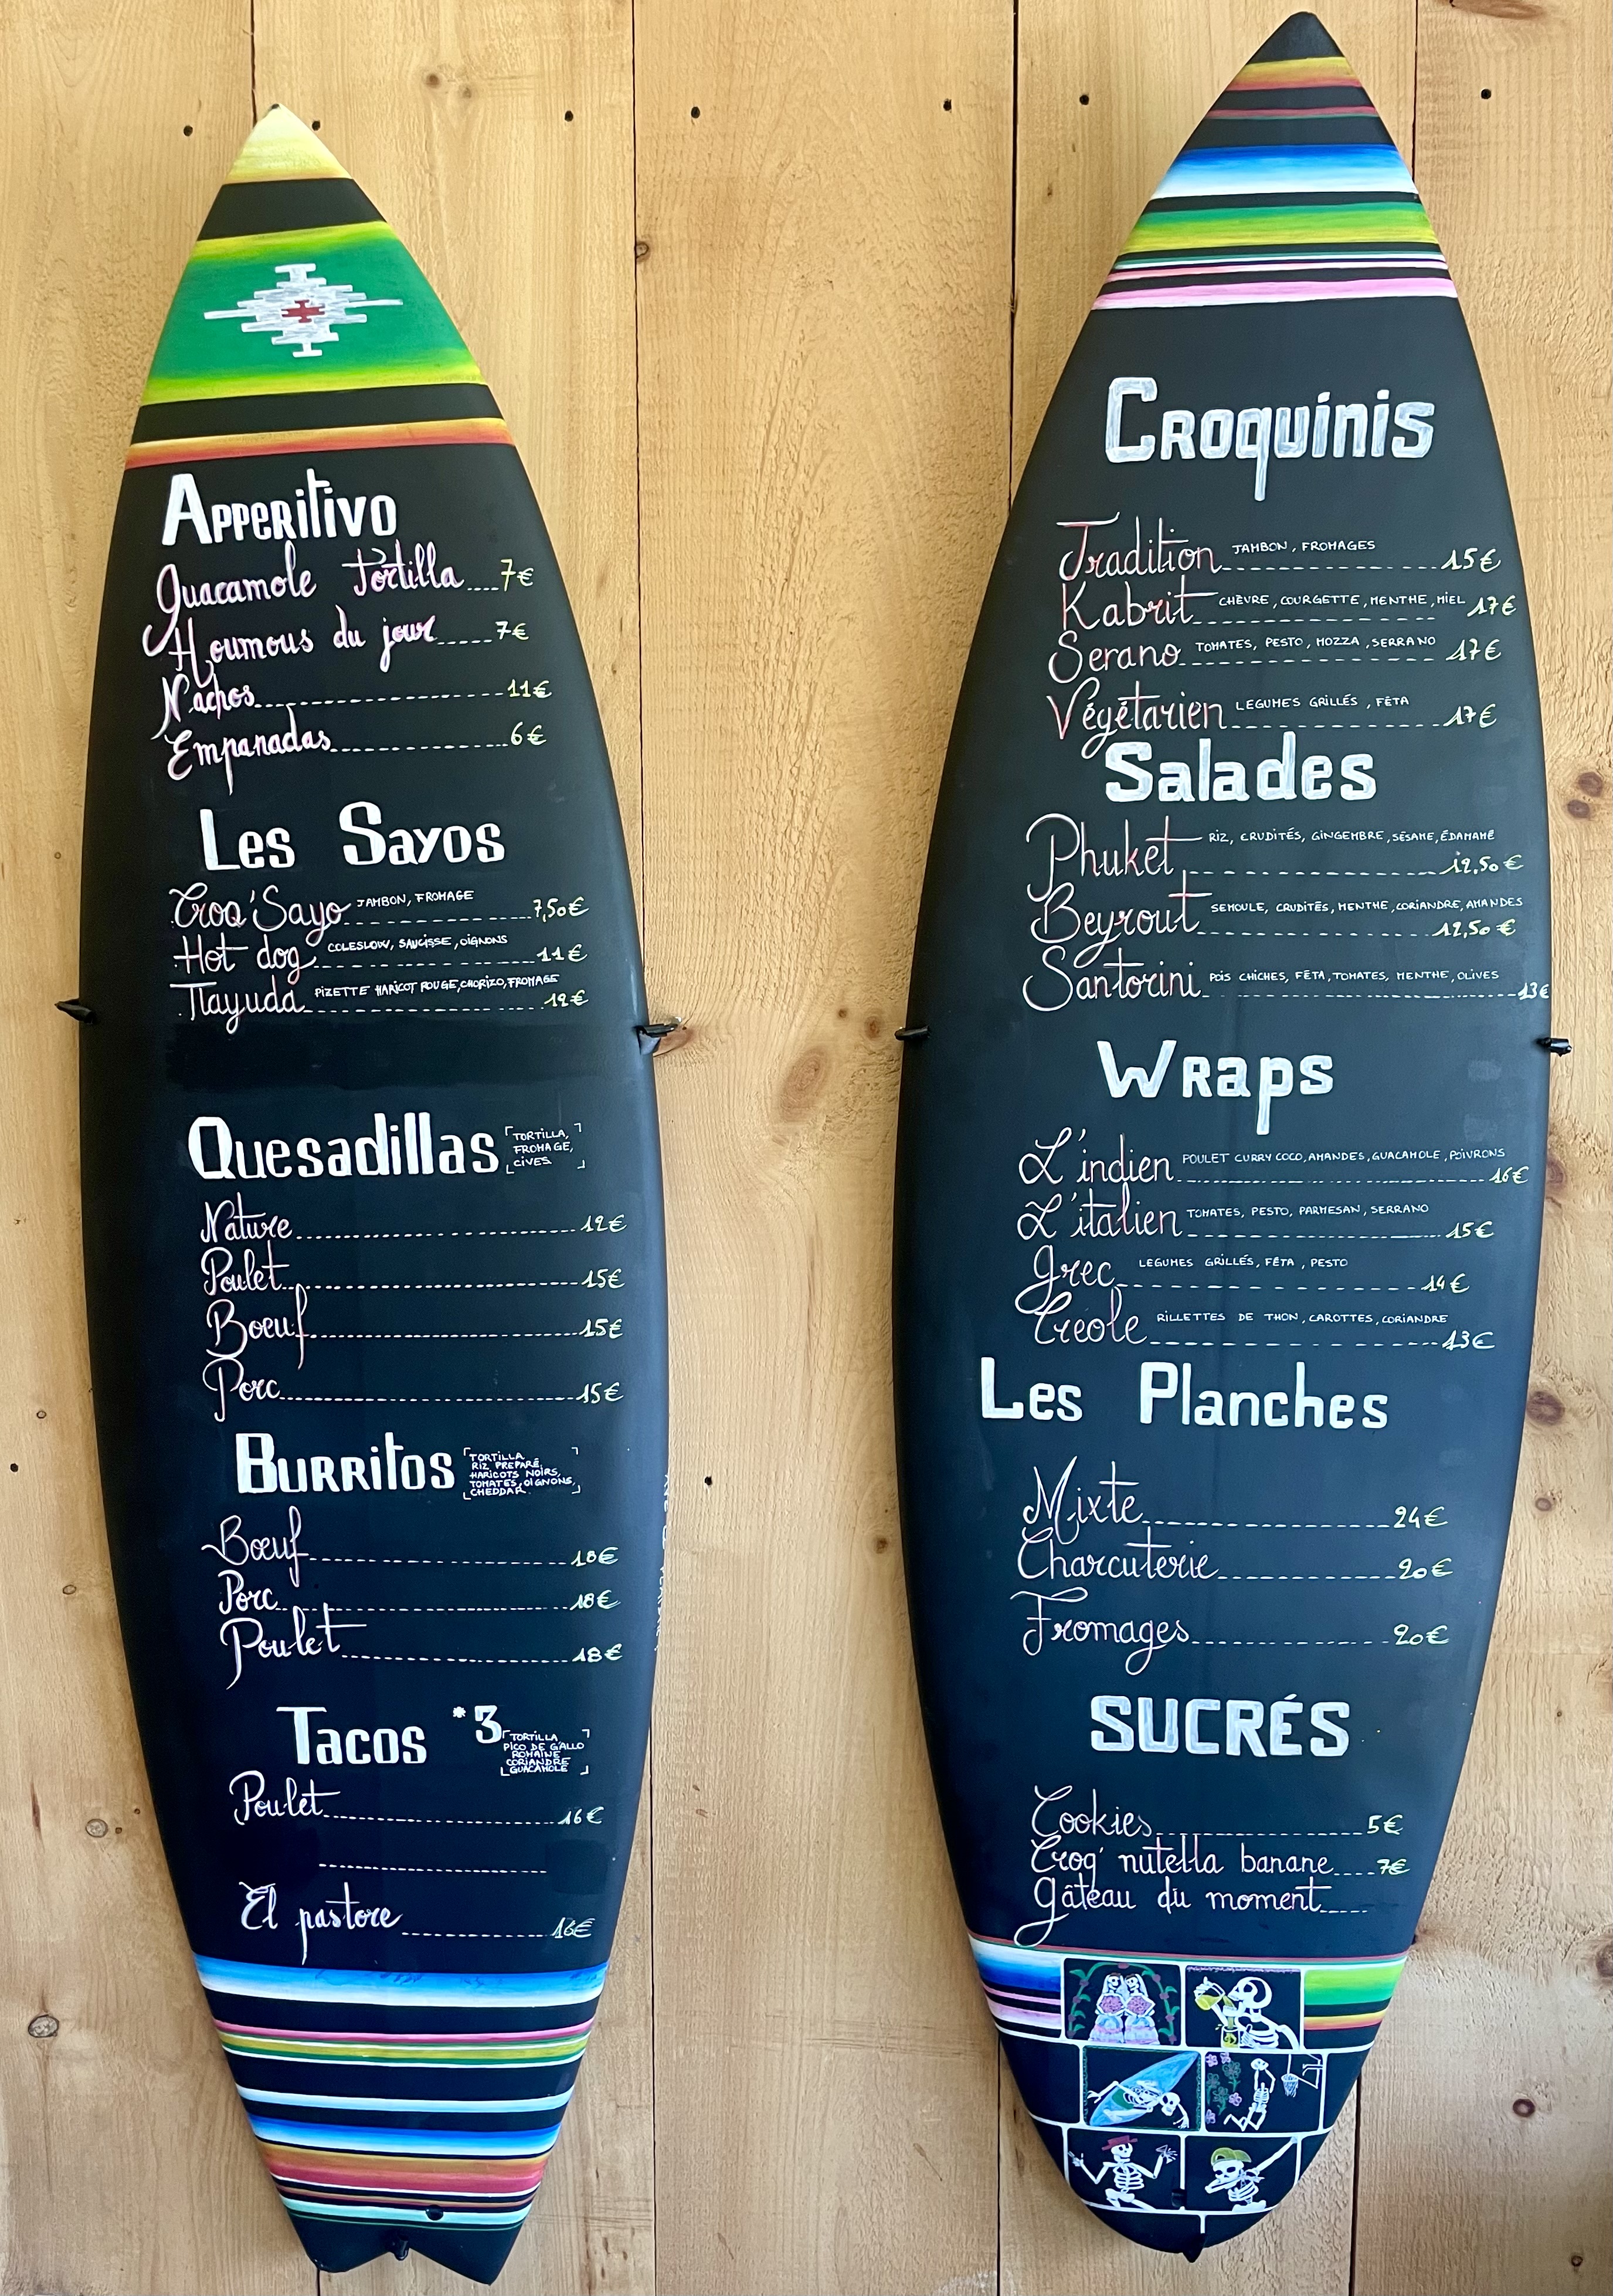 Apperitivo
Guacamole Tortilla.....7€
Houmous du jour.....7€
Nachos.....11€
Empanadas.....6€
Les Sayos
Croq'Sayo JAMBON, FROMAGE.....7,50€
Hot dog COLESLOW, SAUCISSE, OIGNONS.....11€
Tlayuda PIZETTE HARICOT ROUGE, CHORIZO, FROMAGE.....12€
Quesadillas [TORTILLA,
FROMAGE,
CIVES]
Nature.....12€
Poulet.....15€
Boeuf.....15€
Porc.....15€
Burritos [TORTILLA
RIZ PREPARÉ,
HARICOTS NOIRS,
TOMATES, OIGNONS,
CHEDDAR]
Bœuf.....18€
Porc.....18€
Poulet.....18€
Tacos *3 [TORTILLA
PICO DE GALLO
ROMAINE
CORIANDRE
GUACAMOLE]
Poulet.....16€
El pastore.....16€
Croquinis
Tradition JAMBON, FROMAGES.....15€
Kabrit CHÈVRE, COURGETTE, MENTHE, MIEL.....17€
Serano TOMATES, PESTO, MOZZA, SERRANO.....17€
Végétarien LEGUMES GRILLÉS, FÊTA.....17€
Salades
Phuket RIZ, CRUDITÉS, GINGEMBRE, SÉSAME, ÉDAMAMÉ.....12,50€
Beyrout SEMOULE, CRUDITÉS, MENTHE, CORIANDRE, AMANDES.....12,50€
Santorini POIS CHICHES, FÊTA, TOMATES, MENTHE, OLIVES.....13€
Wraps
L'indien POULET CURRY COCO, AMANDES, GUACAMOLE, POIVRONS.....16€
L'italien TOMATES, PESTO, PARMESAN, SERRANO.....15€
Grec LEGUMES GRILLÉS, FÊTA, PESTO.....14€
Créole RILLETTES DE THON, CAROTTES, CORIANDRE.....13€
Les Planches
Mixte.....24€
Charcuterie.....20€
Fromages.....20€
SUCRÉS
Cookies.....5€
Croq' nutella banane.....7€
Gâteau du moment.....